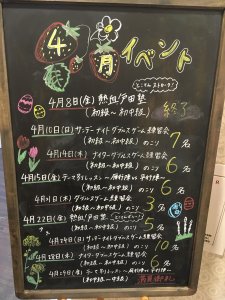 4月イベント
とことんストローク!
4月8日(金) 熱血!戸田塾
(初級〜初中級) 終了
4月10日(日) サンデーナイトダブルスゲーム練習会
(初級〜初中級) のこり 7名
4月14日(木) ナイターダブルスゲーム練習会
(初級〜初中級) のこり 6名
4月15日(金) テーマ別レッスン
(初級〜初中級) のこり 6名
ダブルスゲーム練習会
(初級〜初中級) のこり 3名
4月22日(金) 熱血!戸田塾
(初級〜初中級) のこり 5名
4月24日(日) サンデーナイトダブルスゲーム練習会
(初級〜初中級) のこり 10名
4月28日(木) ナイターダブルスゲーム練習会
(初級〜初中級) のこり 6名
4月29日(金) テーマ別レッスン
(初中級〜中級) 満員御礼